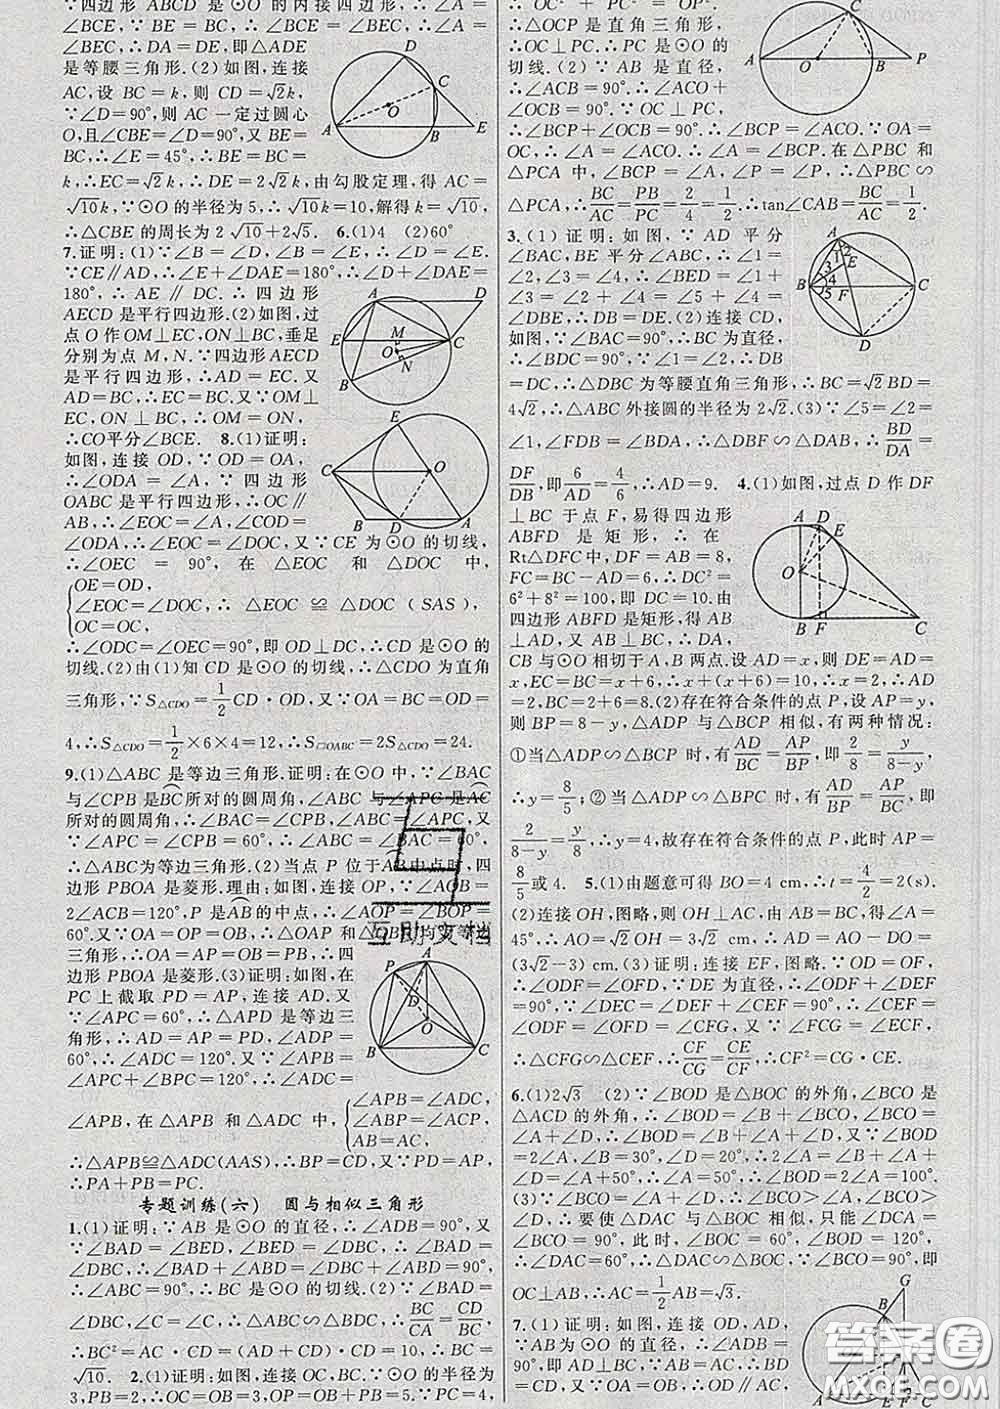 四边形 ABCD 是⊙O 的内接四边形,∴∠A=
∠BCE,∵∠BEC=∠BCE,∴∠A=
∠BEC,∴DA=DE,即△ADE
是等腰三角形.(2)如图,连接
AC,设 BC=k,则 CD=√2k,
∵∠D=90°,则 AC 一定过圆心
O,且∠CBE=∠D=90°,又 BE=
BC,∴∠E=45°,∴BE=BC=
k,∴EC=√2k,∴DE=2√2k,由勾股定理,得 AC=
√10k,∵⊙O 的半径为 5,∴√10k=10,解得 k=√10,
∴△CBE 的周长为 2√10+2√5. 6.(1)4 (2)60°
7.证明:(1)∵∠B=∠D,∠B=∠E,∴∠D=∠E.
∵CE∥AD,∴∠E+∠DAE=180°,∴∠D+∠DAE=
180°,∴AE∥DC.∴四边形
AECD 是平行四边形.(2)如图,过
点 O 作 OM⊥EC,ON⊥BC,垂足
分别为点 M,N.∵四边形 AECD
是平行四边形,∴AD=EC.又
AD=BC,∴EC=BC.又∵OM⊥
EC,ON⊥BC,∴OM=ON,
∴CO平分∠BCE. 8.(1)证明:
如图,连接 OD,∵OD=OA,
∴∠ODA=∠A,∵四边形
OABC 是平行四边形,∴OC∥
AB,∴∠EOC=∠A,∠COD=
∠ODA,∴∠EOC=∠DOC,又∵CE 为⊙O 的切线,
∴∠OEC=90°,在△EOC 和△DOC 中,
{OE=OD,
∠EOC=∠DOC,∴△EOC≌△DOC(SAS),
OC=OC,
∴∠ODC=∠OEC=90°,即 OD⊥DC,∴CD 是⊙O 的
切线.(2)由(1)知 CD 是⊙O 的切线,∴△CDO 为直角
三角形,∵S△CDO=1/2CD·OD,又∵OA=BC=OD=
4,∴S△CDO=1/2×6×4=12,∴S▱OABC=2S△CDO=24.
9.(1)△ABC 是等边三角形.证明:在⊙O 中,∵∠BAC
与∠CPB 是BC所对的圆周角,∠ABC 与∠APC 是AC
所对的圆周角,∴∠BAC=∠CPB,∠ABC=∠APC,又
∵∠APC=∠CPB=60°,∴∠ABC=∠BAC=60°,
∴△ABC为等边三角形.(2)当点 P 位于AB中点时,四
边形 PBOA 是菱形.理由:如图,连接 OP,∵∠AOB=
2∠ACB=120°,P 是AB的中点,∴∠AOP=∠BOP=
60°.又∵OA=OP=OB,∴△OAP 和△OBP均为等边
三角形,∴OA=AP=OB=PB,∴四
边形 PBOA 是菱形.(3)证明:如图,在
PC 上截取 PD=AP,连接 AD.又
∵∠APC=60°,∴△APD 是等边三
角形,∴AD=AP=PD,∠ADP=
60°,∴∠ADC=120°.又∵∠APB=
∠APC+∠BPC=120°,∴∠ADC=
∠APB,在△APB 和△ADC 中,{∠APB=∠ADC,
∠ABP=∠ACP,
AB=AC,
∴△APB≌△ADC(AAS),∴BP=CD,又∵PD=AP,
∴PA+PB=PC.
专题训练(六) 圆与相似三角形
1.(1)证明:∵AB 是⊙O 的直径,∴∠ADB=90°,又
∵∠BAD=∠BED,∠BED=∠DBC,∴∠BAD=
∠DBC,∴∠BAD+∠ABD=∠DBC+∠ABD=90°,
∴∠ABC=90°,∴BC 是⊙O 的切线.(2)∵∠BAD=
∠DBC,∠C=∠C,∴△ABC∽△BDC,∴BC/CA=CD/BC,
∴BC²=AC·CD=(AD+CD)·CD=10,∴BC=
√10. 2.(1)证明:如图,连接 OC,∵⊙O 的半径为
3,PB=2,∴OC=OB=3,OP=OB+PB=5,∵PC=4,
∴OC²+PC²=OP².
∴△OCP 是直角三角形,
∴OC⊥PC.∴PC 是⊙O 的
切线.(2)∵AB 是直径,
∴∠ACB=90°,∴∠ACO+
∠OCB=90°.∵OC⊥PC,
∴∠BCP+∠OCB=90°.∴∠BCP=∠ACO.∵OA=
OC,∴∠A=∠ACO.∴∠A=∠BCP.在△PBC 和
△PCA 中,∠BCP=∠A,∠P=∠P,∴△PBC∽
△PCA,∴BC/AC=PB/PC=2/4=1/2,∴tan∠CAB=BC/AC=1/2.
3.(1)证明:如图,∵AD 平分
∠BAC,BE 平分∠ABC,∴∠1=
∠2,∠3=∠4,∴∠BED=∠1+
∠3=∠2+∠4=∠5+∠4=
∠DBE,∴DB=DE.(2)连接 CD,
如图,∵∠BAC=90°,∴BC 为直径,
∴∠BDC=90°,∵∠1=∠2,∴DB
=DC,∴△DBC 为等腰直角三角形,∴BC=√2BD=
4√2,∴△ABC 外接圆的半径为 2√2.(3)∵∠5=∠2=
∠1,∠FDB=∠BDA,∴△DBF∽△DAB,∴BD/DA=
DF/DB,即6/AD=4/6,∴AD=9. 4.(1)如图,过点 D 作 DF
⊥BC 于点 F,易得四边形
ABFD 是矩形,∴在
Rt△DFC 中,DF=AB=8,
FC=BC-AD=6,∴DC²=
6²+8²=100,即 DC=10.由
四边形 ABFD 是矩形,得 AB
⊥AD,又 AB⊥BC,∴DA,
CB 与⊙O 相切于 A,B 两点.设 AD=x,则 DE=AD=
x,EC=BC=x+6,∴x+(x+6)=10,∴x=2,∴AD
=2,BC=2+6=8.(2)存在符合条件的点 P,设 AP=y,
则 BP=8-y,△ADP 与△BCP 相似,有两种情况:
①当△ADP∽△BCP 时,有AD/BC=AP/BP,即2/8=y/(8-y),
∴y=8/5;②当△ADP∽△BPC 时,有AD/BP=AP/BC,即
2/(8-y)=y/8,∴y=4,故存在符合条件的点 P,此时 AP=
8/5或 4. 5.(1)由题意可得 BO=4 cm,∴t=4/2=2(s).
(2)连接 OH,图略,则 OH⊥AB,由 AB=AC,得∠A=
45°,∴AO=√2OH=3√2 cm,∴OC=AC-AO=
(3√2-3) cm.(3)证明:连接 EF,图略.∵OD=OF,
∴∠ODF=∠OFD,∵DE 为直径,∴∠ODF+∠DEF
=90°,∵∠DEC=∠DEF+∠CEF=90°,∴∠CEF=
∠ODF=∠OFD=∠CFG,又∵∠FCG=∠ECF,
∴△CFG∽△CEF,∴CF/CG=CE/CF,∴CF²=CG·CE.
6.(1)2√3 (2)∵∠BOD 是△BOC 的外角,∠BCO 是
△ACD 的外角,∴∠BOD=∠B+∠BCO,∠BCO=
∠A+∠D,∴∠BOD=∠B+∠A+∠D,又∵∠BOD=
2∠A,∠B=30°,∠D=20°,∴2∠A=∠B+∠A+∠D=
∠A+50°,∴∠A=50°,∴∠BOD=2∠A=100°.
(3)∵∠BCO=∠A+∠D,∴∠BCO>∠A,∠BCO>
∠D,∴要使△DAC 与△BOC 相似,只能∠DCA=
∠BCO=90°,此时,∠BOC=60°,∠BOD=120°,
∴∠DAC=60°,∴△DAC∽△BOC,∵∠BCO=90°,即
OC⊥AB,∴AC=1/2AB=√3.
7.(1)证明:如图,连接 OD,AD,
∵AB为⊙O 的直径,∴∠ADB=
90°,即 AD⊥BC,∵AB=AC,
∴BD=CD,又∵OA=OB,∴OD∥AC,
互助文档
答案圈
MXQE.COM